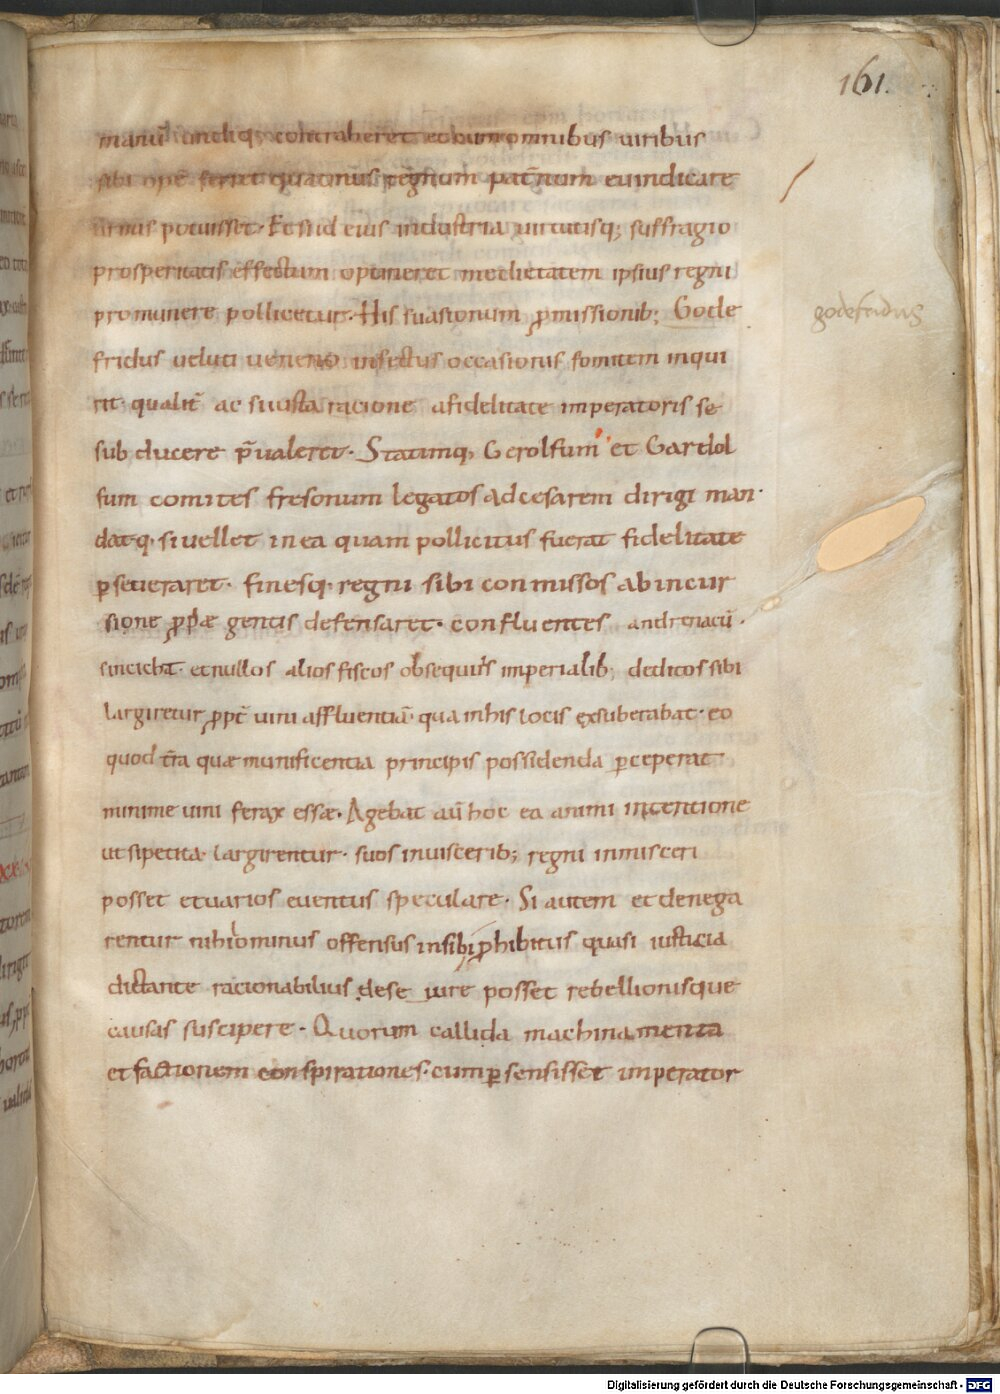 161.
manū undiq; contraheret et cum omnibus uiribus
sibi opē ferret quatinus regnum pat̄num euindicare
armis potuisset. Et si id eius industria uirtutisq; suffragio
prosperitatis effectum optineret medietatem ipsius regni
pro munere pollicetur. His suasionum ꝓmissionib; Gode
godefridus
fridus veluti veneno infectus occasionis fomitem inqui
rit. qualit̄ ac si iusta racione a fidelitate imperatoris se
sub ducere p̄ualeret. Statimq; Gerolfum et Gardol
fum comites fresonum legatos ad cesarem dirigi man
dat q. si uellet in ea quam pollicitus fuerat fidelitate
ꝑseueraret. finesq. regni sibi conmissos ab incur
sione ꝓp̄æ gentis defensaret. confluentes andrenacū.
sincicha. et nullos alios fiscos obsequiis imperialib; deditos sibi
largiretur ꝓpt̄ uini affluentiā. qua in his locis exsuberabat. eo
quod t̄ra quæ munificentia principis possidenda ꝑceperat
minime uini ferax essæ. Agebat aū hoc ea animi intentione
ut si petita largirentur. suos in uiscerib; regni inmisceri
posset et uarios euentus speculare. Si autem et denega
rentur nihilominus offensus in sibi ꝓhibitis quasi iusticia
dictante racionabilius dese iure posset rebellionisque
causas suscipere. Quorum callida machinamenta
et factionem conspirationes. cum ꝑsensisset imperator
Digitalisierung gefördert durch die Deutsche Forschungsgemeinschaft - DFG